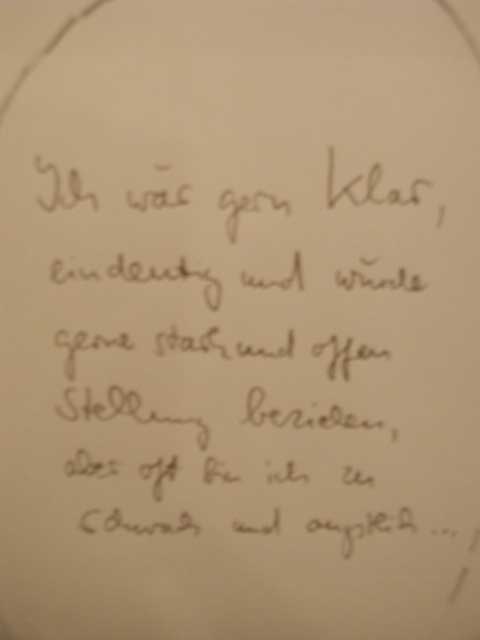 Ich wär gern Klar,
eindeutig und würde
gerne stark und offen
Stellung beziehen,
aber oft bin ich zu
schwach und ängstlich...